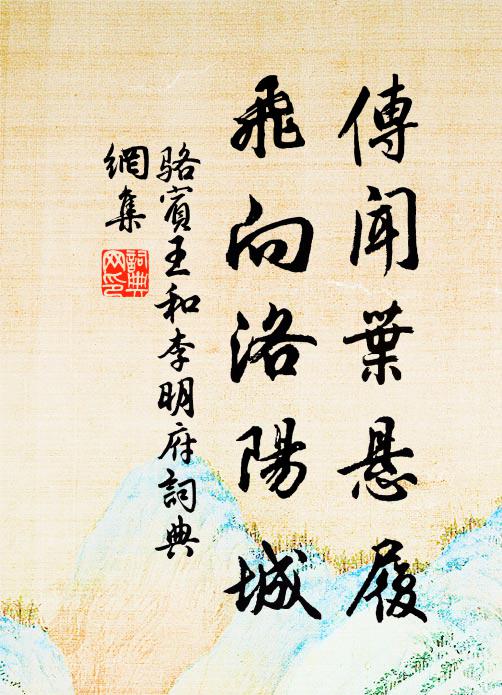 傳聞葉懸履
飛向洛陽城
駱賓王和李明府詞典
網集
詞典
网印